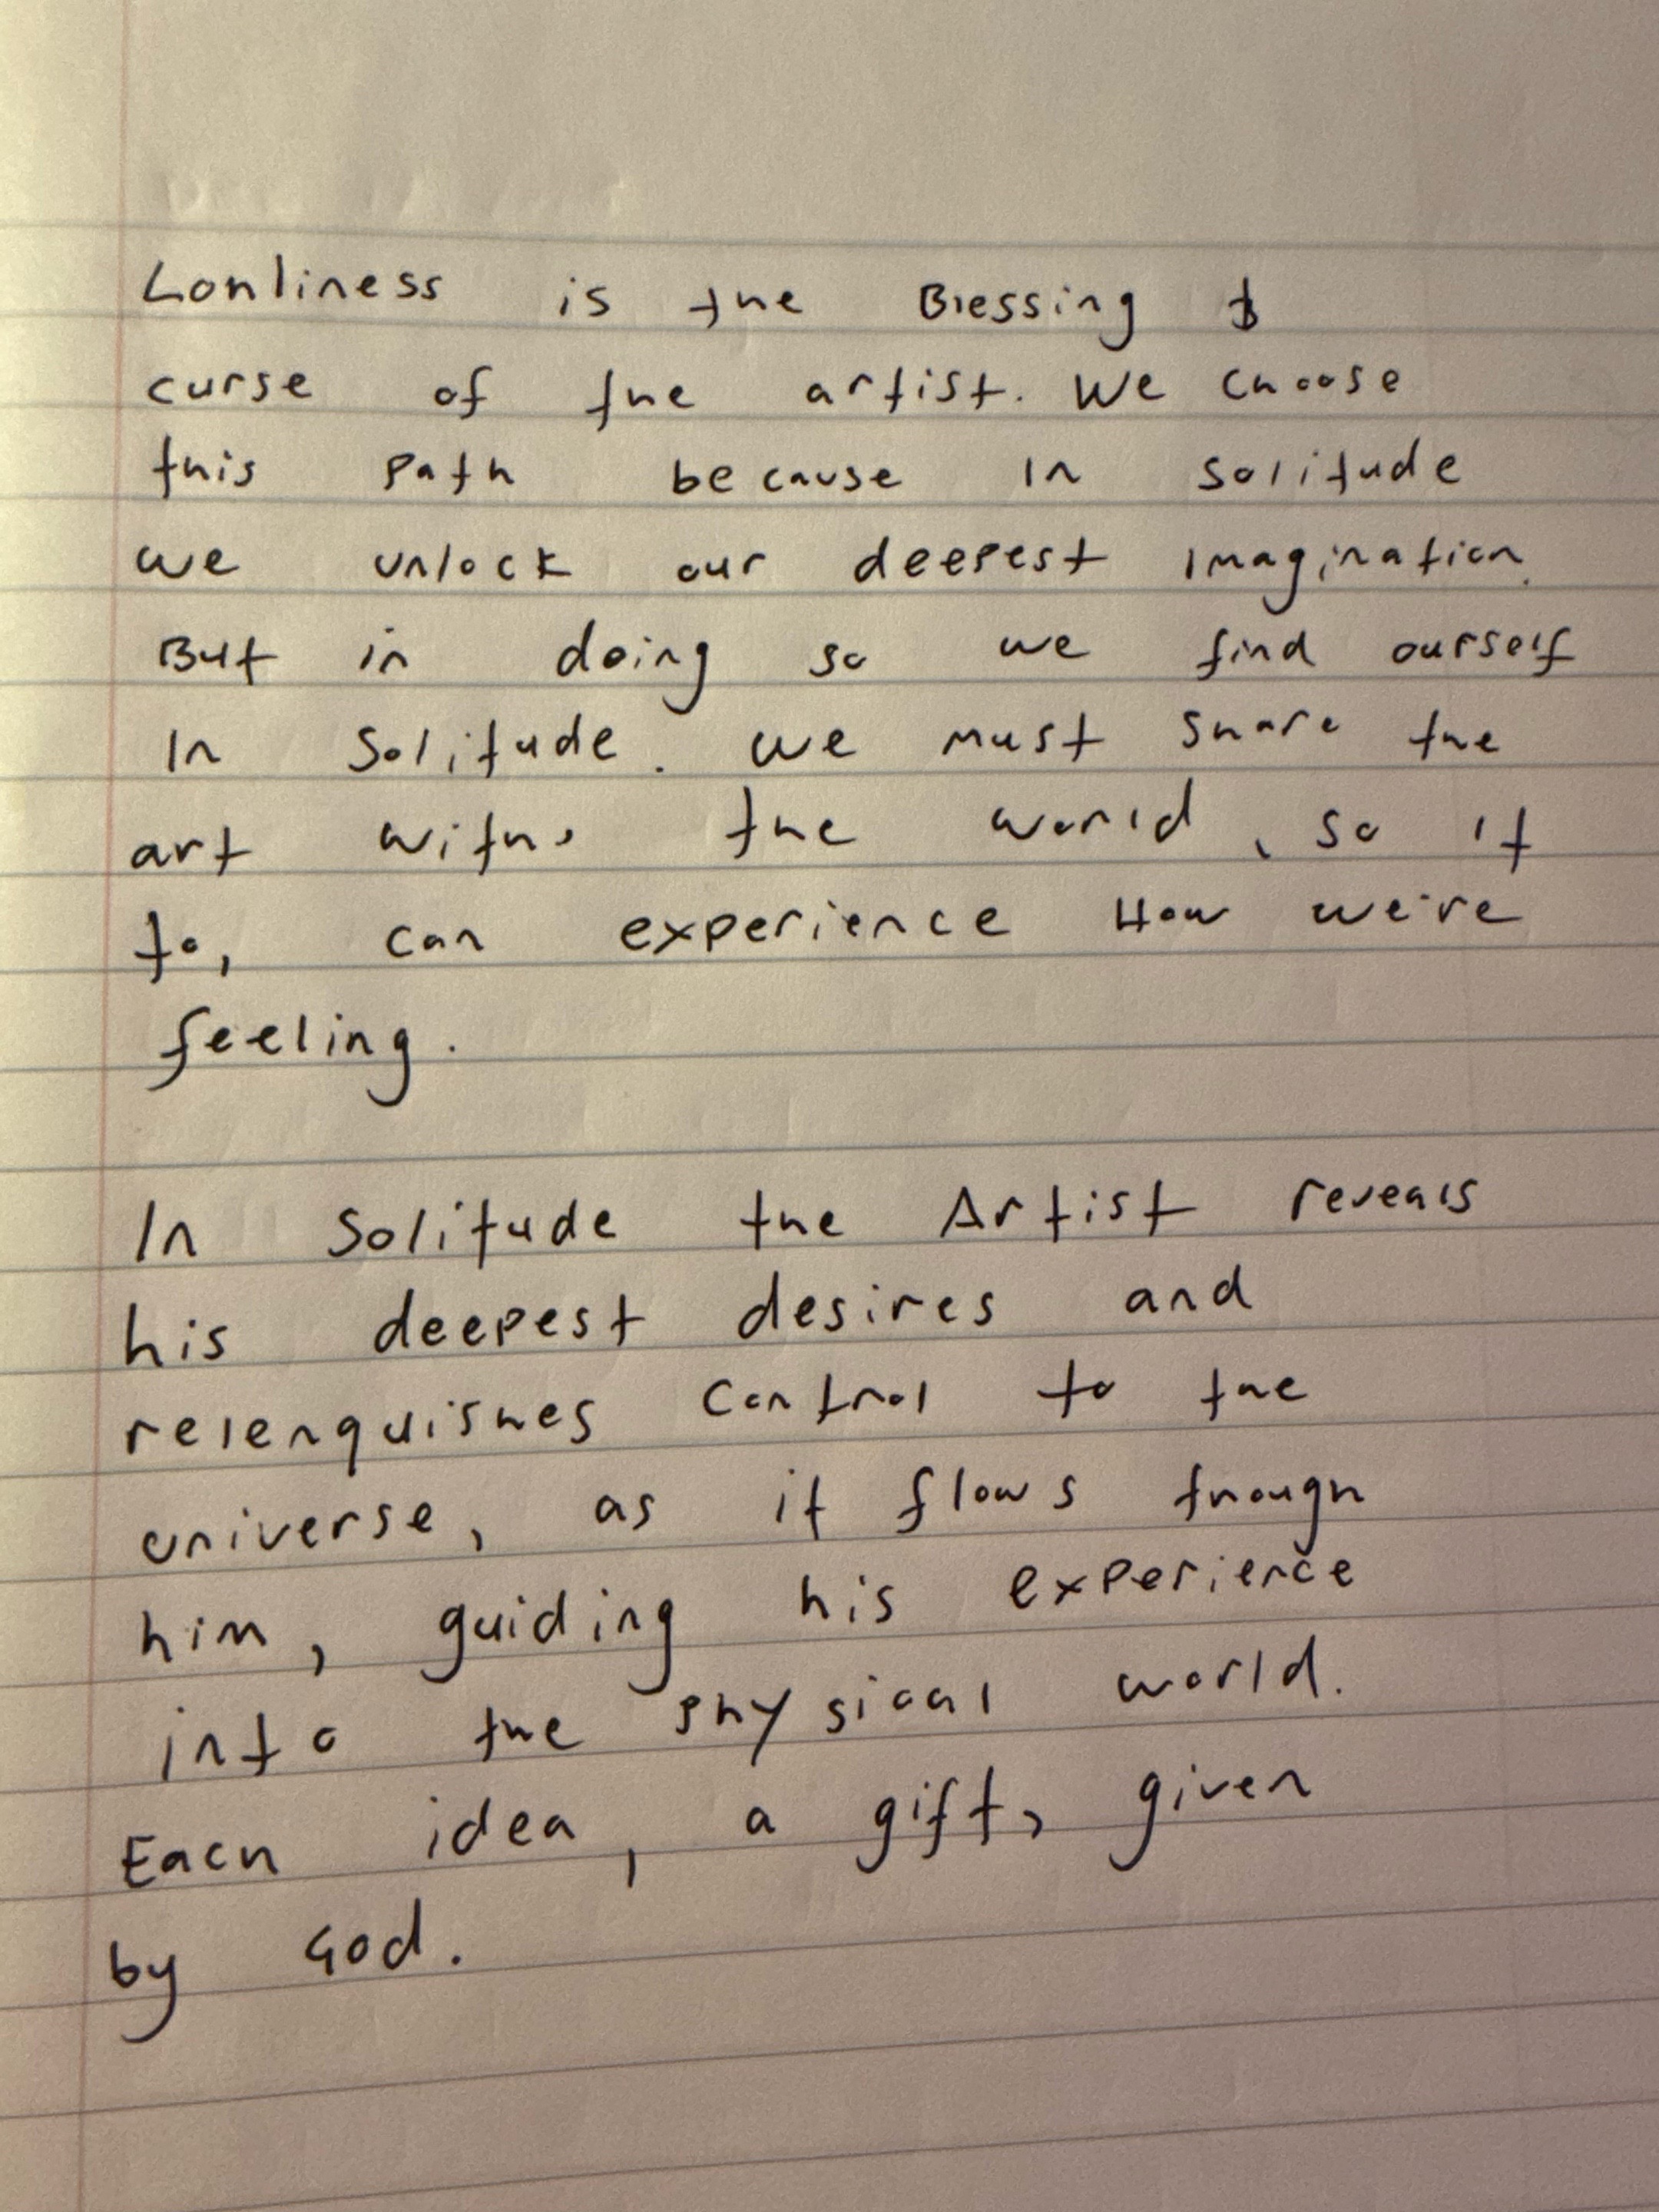 Lonliness is the Blessing &
curse of the artist. We choose
this path because in solitude
we unlock our deepest imagination.
But in doing so we find ourself
In Solitude. we must share the
art with, the world, so it
to, can experience How we're
feeling.
In Solitude the Artist reveals
his deepest desires and
relenquishes control to the
universe, as it flows though
him, guiding his experience
into the physical world.
Each idea, a gift, given
by God.